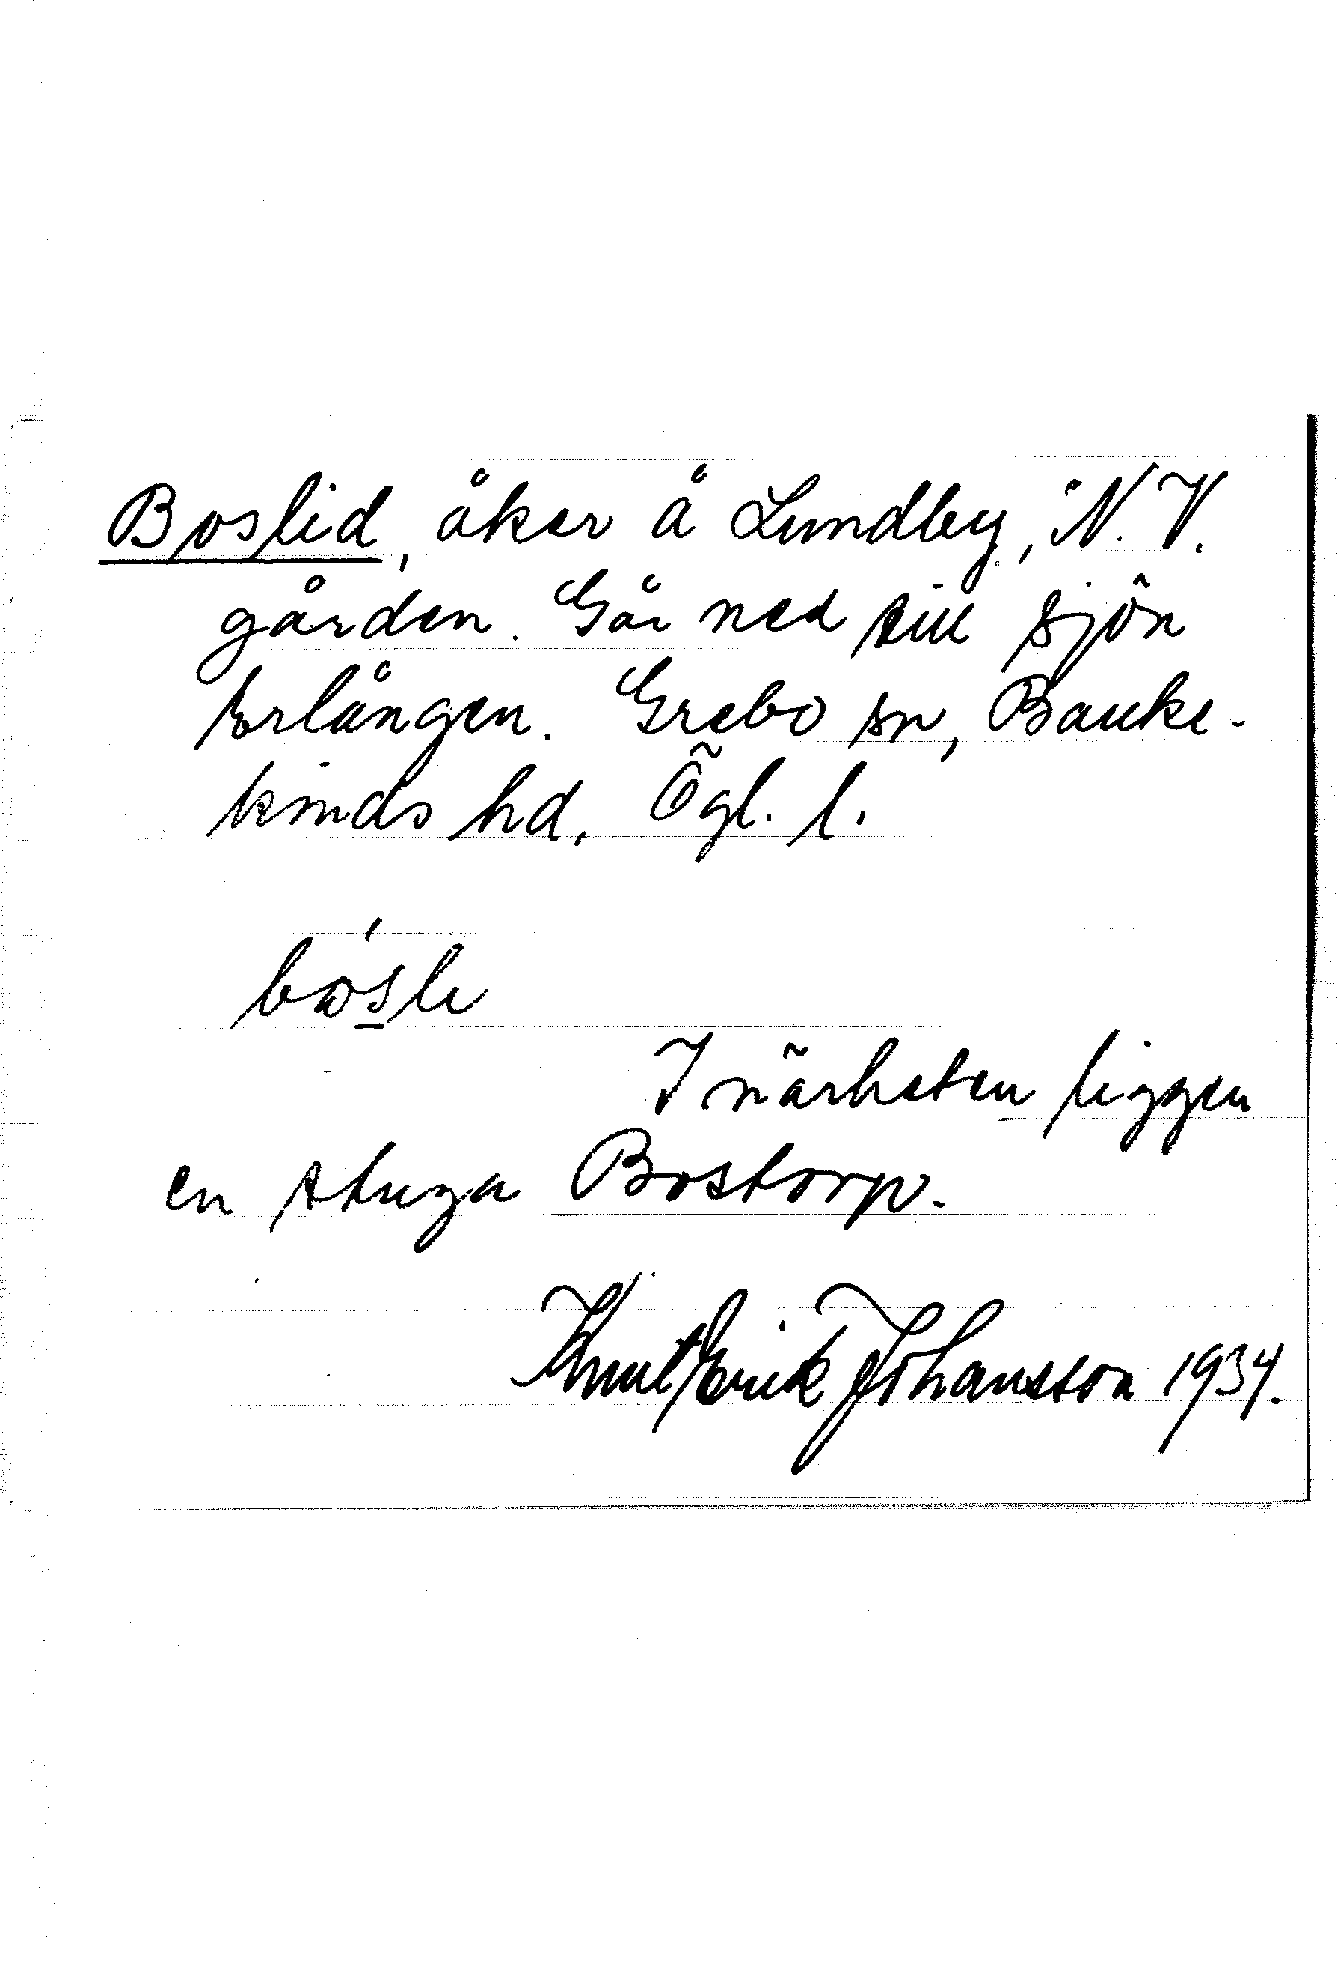 Boslid, åker å Lundby, N. V.
gården. Går ned till sjön
Erlången. Grebo sn, Banke-
kinds hd, Ögl. l.
I närheten ligger
en stuga Bostorp.
Knut Erik Johansson 1934.